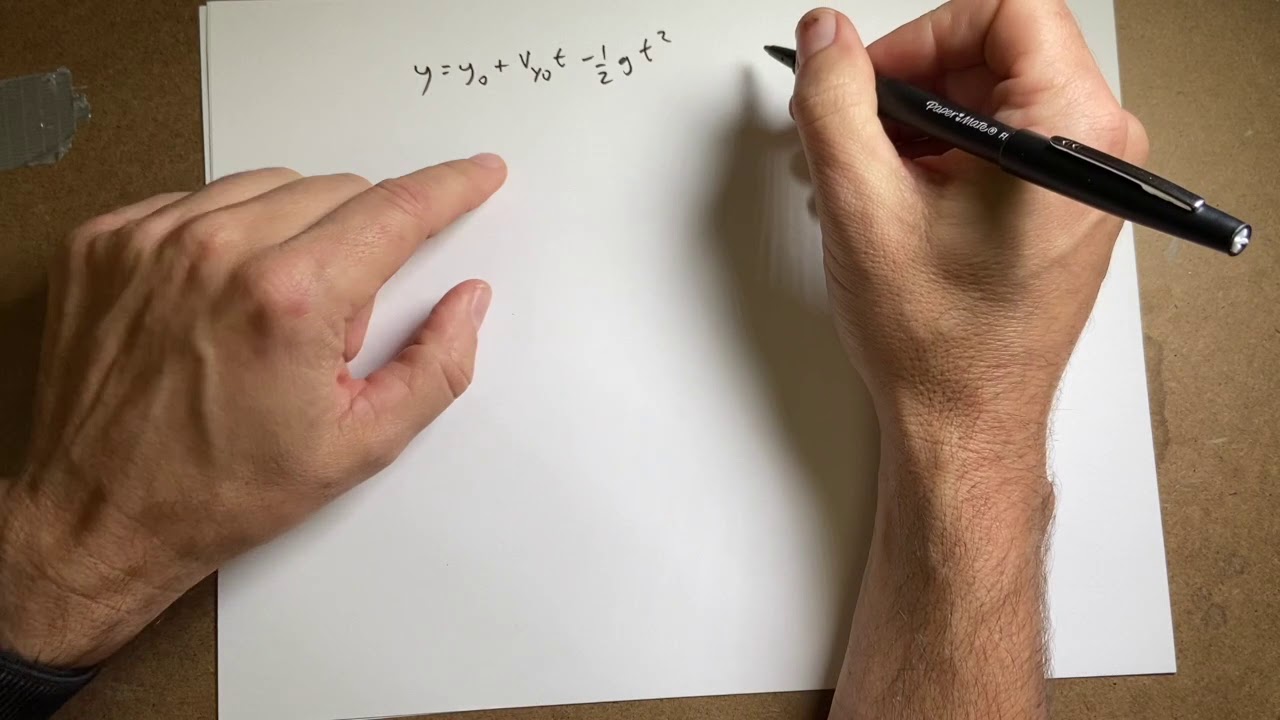 y = y₀ + v_y₀ t - ½ g t²
Paper Mate®